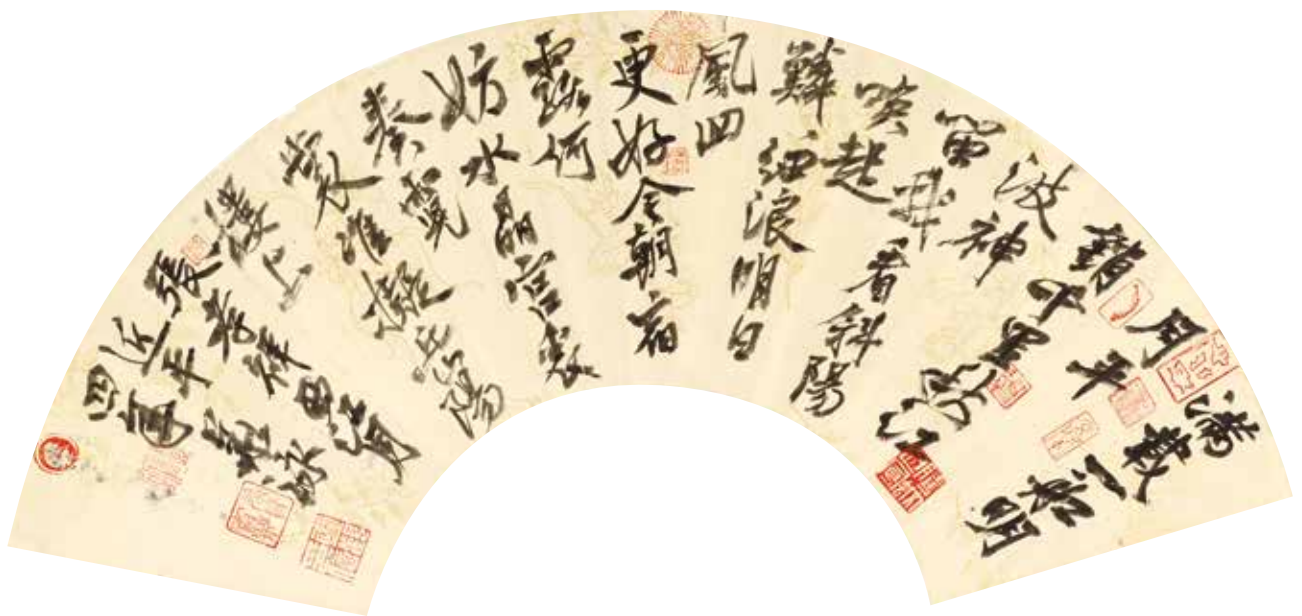 滿載一船明
月平
鋪千里秋江
波神
留我看斜陽
喚起
鱗細浪明日
風回
更好今朝宿
露何
妨水晶宮裏
奏霓
裳准擬岳陽
樓上
張孝祥西江月
近年